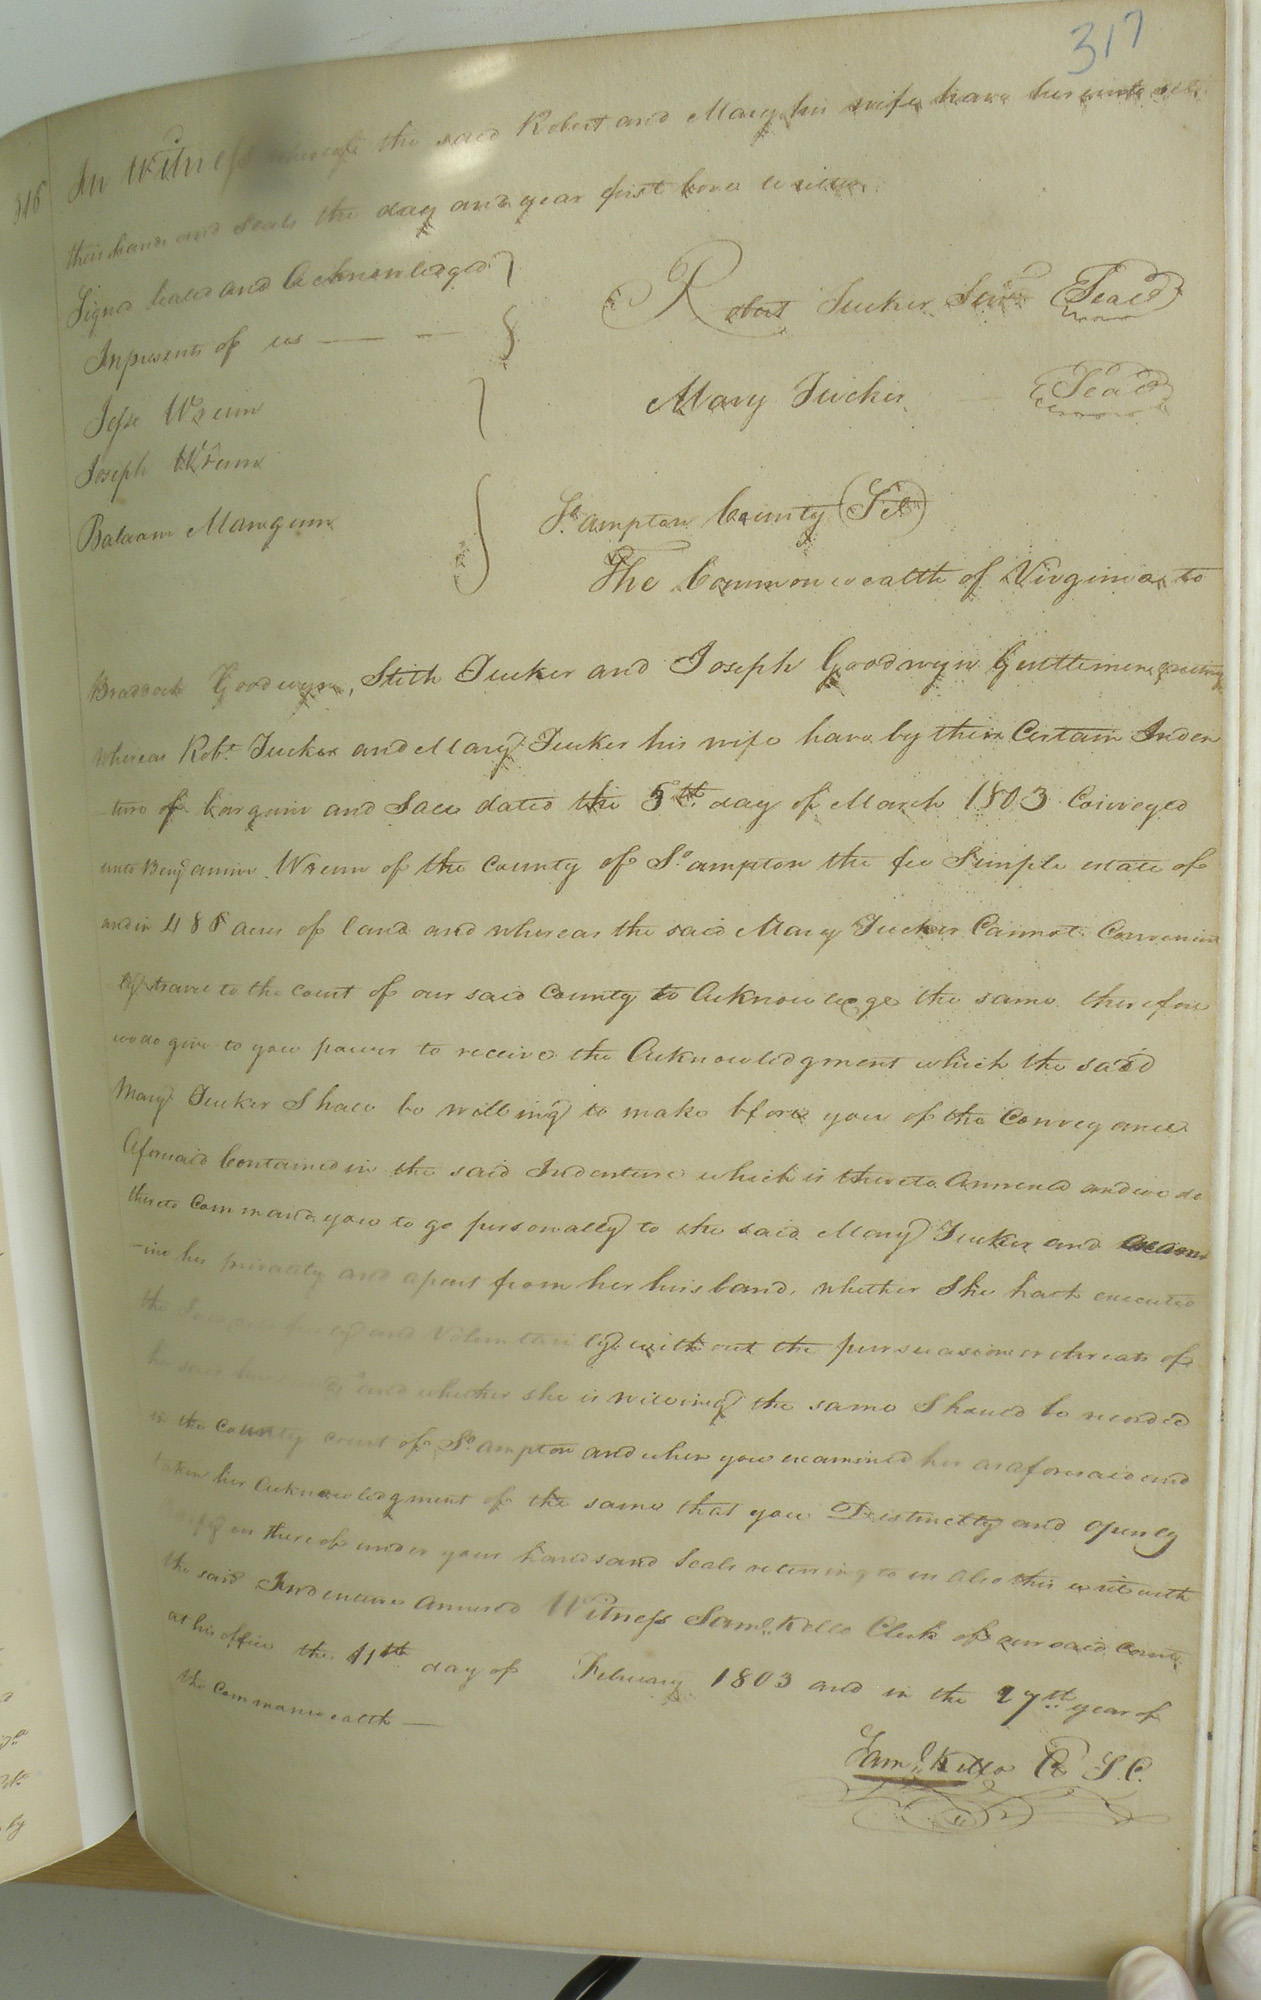 317
316
In Witness whereof the said Robert and Mary his wife have hereunto set
their hands and Seals the day and year first bove written
Signed Sealed and Acknowledged
Robert Tucker Senr Seal
Inpresents of us
Jesse Wrenn
Mary Tucker Seal
Joseph Wrenn
Balaam Mangum
So. ampton County (Sct)
The Commonwealth of Virginia to
Braddock Goodwyn, Stith Tucker and Joseph Goodwyn Gentlemen greeting
whereas Robt. Tucker and Mary Tucker his wife have by their Certain Inden
-ture of bargain and Sale dated the 5th day of March 1803 Conveyed
unto Benjamin Wrenn of the county of So. ampton the fee Simple estate of
and in 488 acres of land and whereas the said Mary Tucker Cannot Convenient
ly travel to the court of our said County to Acknowledge the same therefore
we do give to you power to receive the Acknowledgment which the said
Mary Tucker Shall be willing to make bfore you of the Conveyance
Aforesaid Contained in the said Indenture which is thereto Annexed and we do
thereto Command you to go personally to the said Mary Tucker and exam
-ine her privately and apart from her husband, whether She hath executed
the Same freely and Voluntarily without the persuasion or threats of
he said husband and whether she is willing the same Should be recorded
in the County court of So. ampton and when you examined her as aforesaid and
taken her Acknowledgment of the same that you Distinctly and openly
us thereof under your hands and Seals returning to us also this writ with
the said Indenture Annexed Witness Saml. Kello Clerk of our said County
at his office the 11th day of February 1803 and in the 27th year of
the Commonwealth —
Saml. Kello C. S. C.